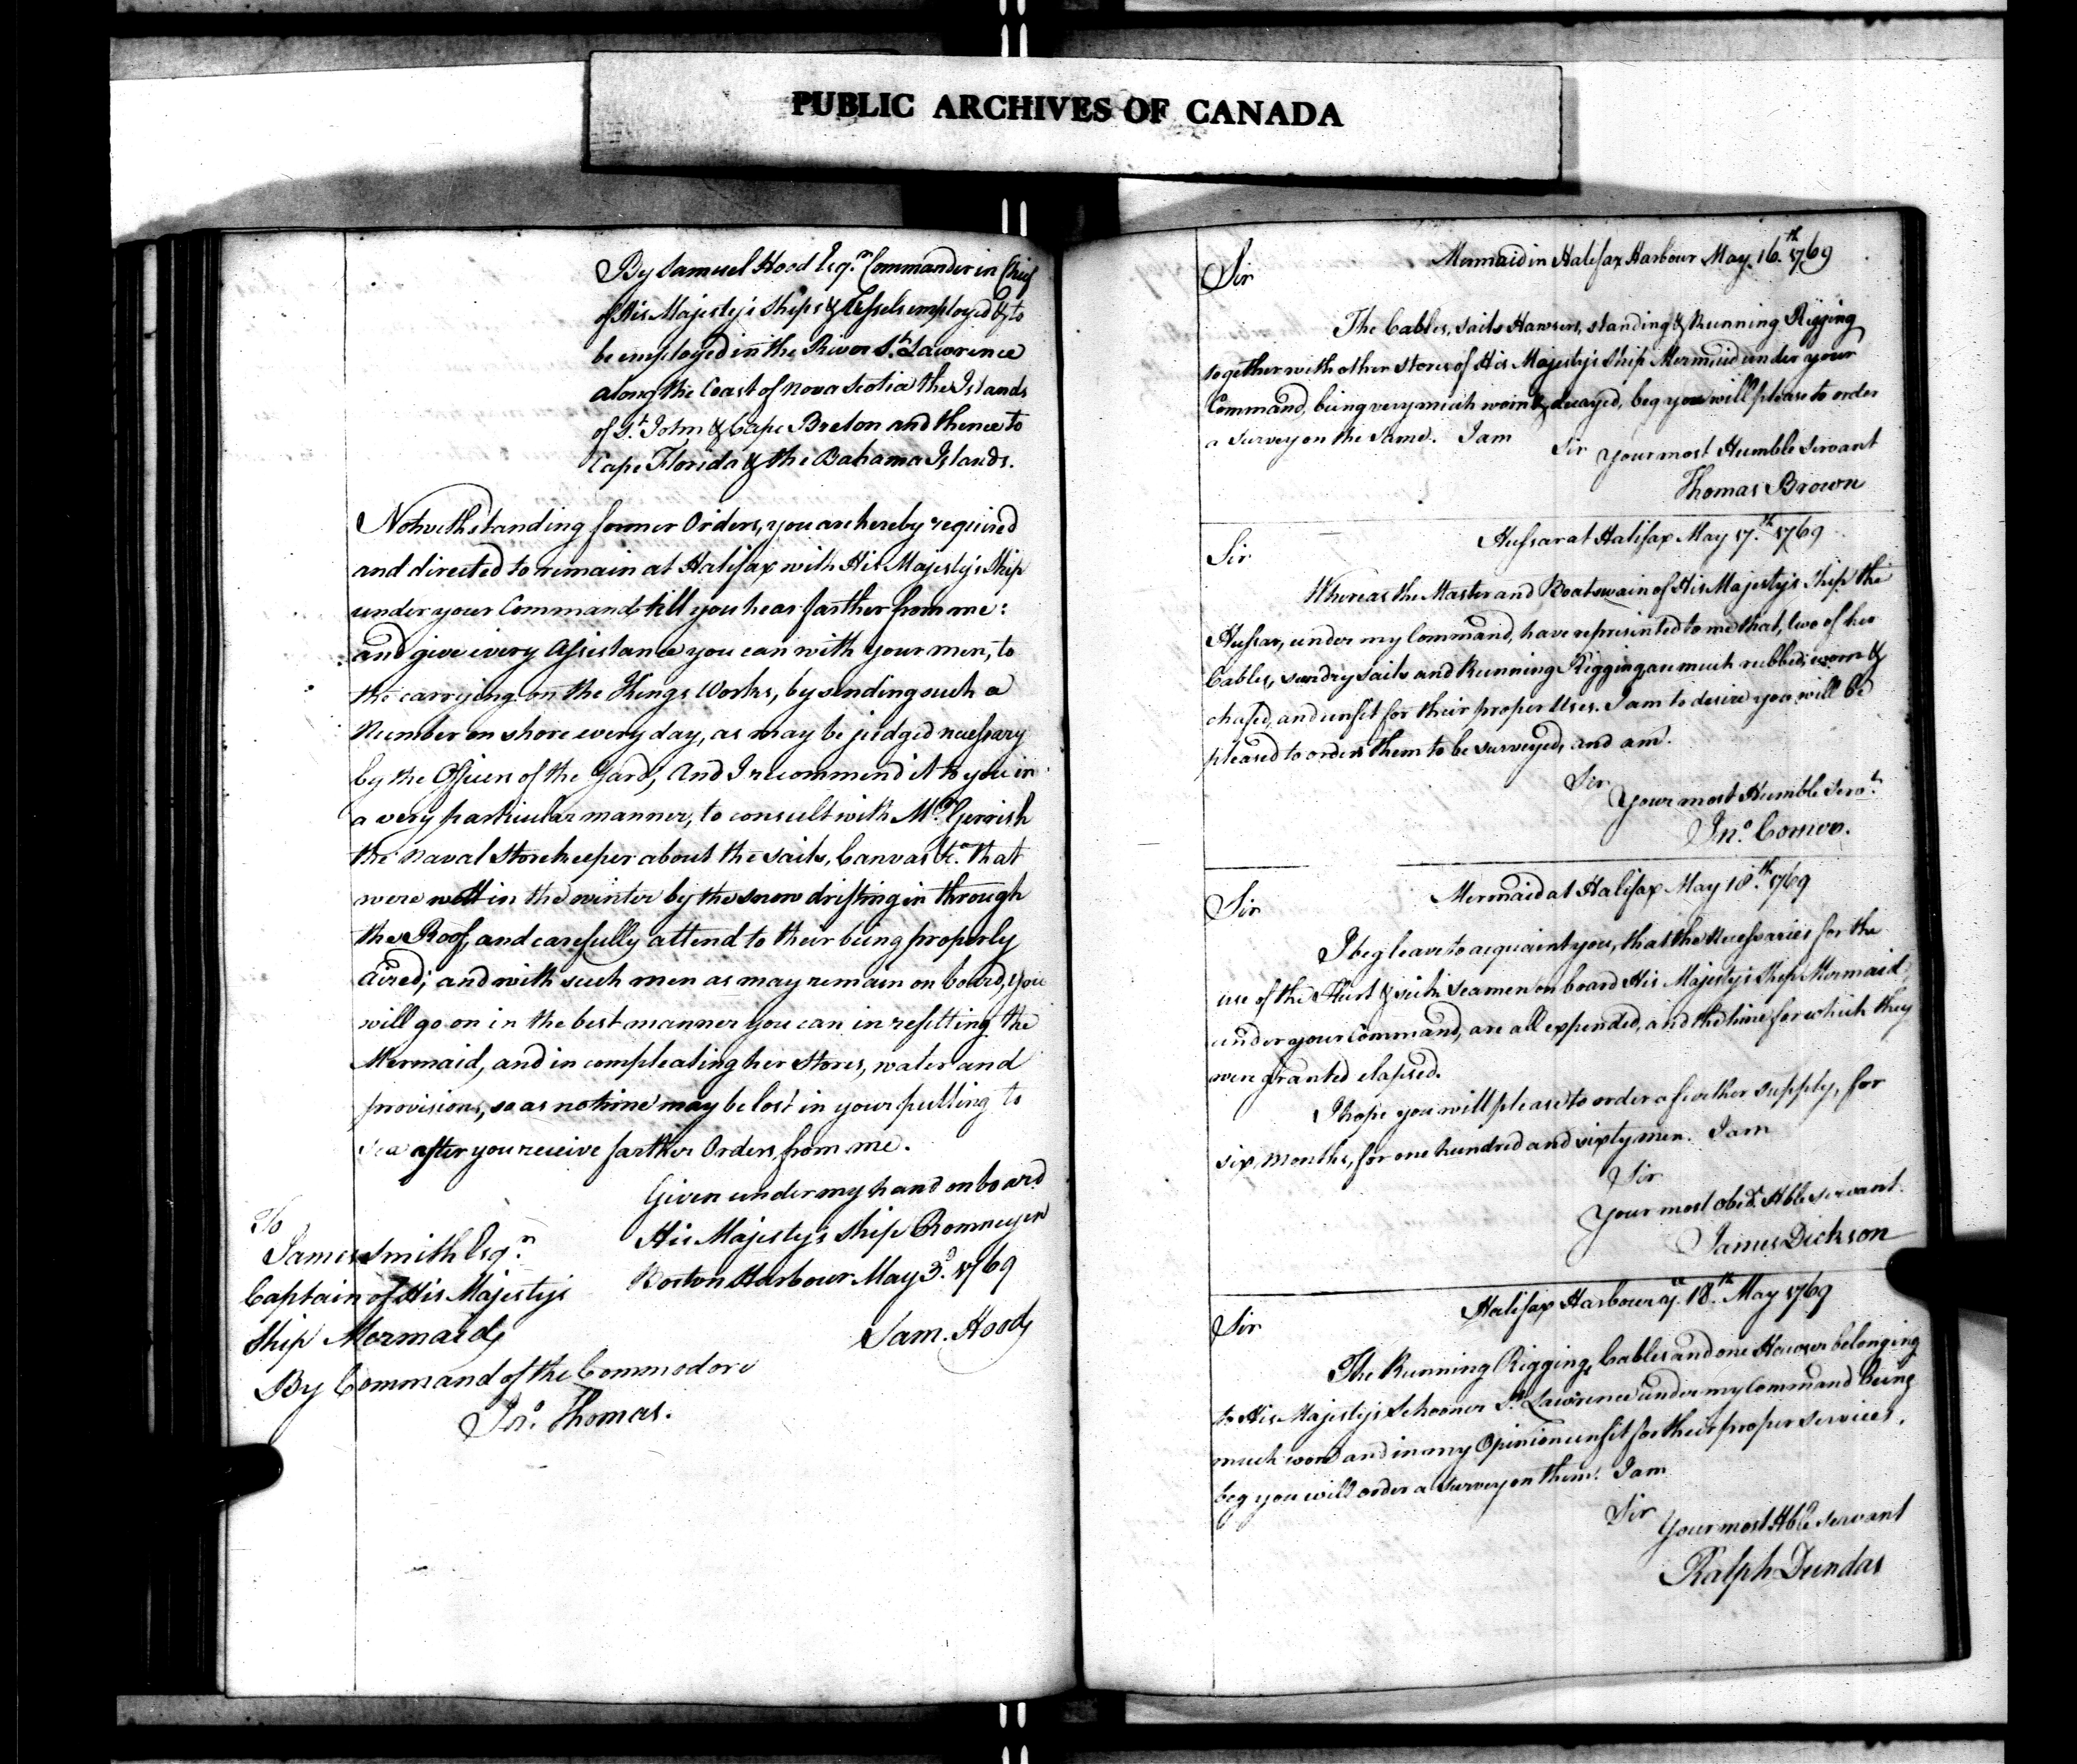 PUBLIC ARCHIVES OF CANADA
By Samuel Hood Esq.r Commander in Chief
of His Majesty's Ships & Vessels employed & to
be employed in the River St. Lawrence
along the Coast of Nova Scotia the Islands
of St. John & Cape Breton and thence to
Cape Florida & the Bahama Islands.
Notwithstanding former Orders, you are hereby required
and directed to remain at Halifax with His Majesty's Ship
under your Command till you hear farther from me:
and give every Assistance you can with your men, to
the carrying on the Kings Works, by sending such a
Number on shore every day, as may be judged necessary
by the Officers of the Yard, And I recommend it to you in
a very particular manner, to consult with Mr. Gerrish
the Naval Storekeeper about the sails, Canvas &c.a that
were wett in the winter by the snow drifting in through
the Roof, and carefully attend to their being properly
aired; and with such men as may remain on board, you
will go on in the best manner you can in refitting the
Mermaid, and in compleating her Stores, water and
provisions, so as no time may be lost in your putting to
sea after you receive farther Orders from me.
Given under my hand on board
His Majesty's Ship Romney in
Boston Harbour May 3.d 1769
Sam. Hood
To
James Smith Esq.r
Captain of His Majestys
Ship Mermaid
By Command of the Commodore
Jno. Thomas.
Mermaid in Halifax Harbour May 16.th 1769
Sir
The Cables, sails Hawsers, standing & Running Rigging
together with other stores of His Majesty's Ship Mermaid under your
Command, being very much worn & decayed, beg you will please to order
a survey on the same. I am
Sir Your most Humble Servant
Thomas Brown
Hussar at Halifax May 17.th 1769
Sir
Whereas the Master and Boatswain of His Majestys Ship the
Hussar, under my Command, have represented to me that, two of her
Cables, sundry sails and Running Rigging are much rubbed, worn &
chafed, and unfit for their proper Uses. I am to desire you will be
pleased to order them to be surveyed, and am.
Sir
Your most Humble Serv.t
Jno. Comer.
Mermaid at Halifax May 18.th 1769
Sir
I beg leave to acquaint you, that the Necessaries for the
use of the Hurt & sick seamen on board His Majestys Ship Mermaid,
under your Command, are all expended, and the time for which they
were granted elapsed.
I hope you will please to order a further supply, for
six months, for one hundred and sixty men. I am
Sir
Your most obed.t Hble servant.
James Dickson
Halifax Harbour 18.th May 1769
Sir
The Running Rigging, Cables and one Hawser belonging
to His Majesty's Schooner St. Lawrence under my Command being
much worn and in my Opinion unfit for their proper services,
beg you will order a survey on them. I am
Sir
Your most Hble servant
Ralph Dundas